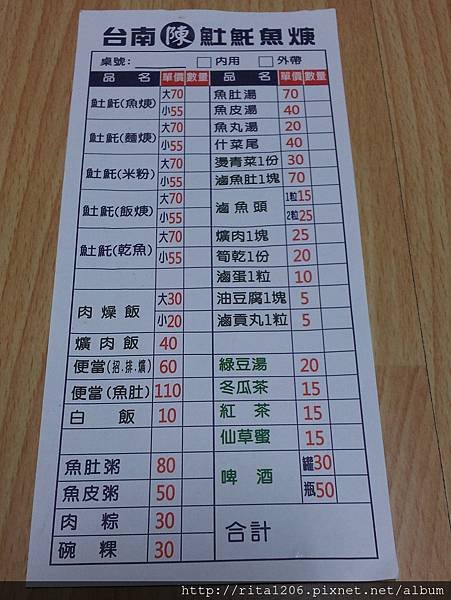 台南陳𩵚魠魚焿
桌號: 內用 外帶
品名 單價 數量 品名 單價 數量
𩵚魠(魚焿) 大70 小55
𩵚魠(麵焿) 大70 小55
𩵚魠(米粉) 大70 小55
𩵚魠(飯焿) 大70 小55
𩵚魠(乾魚) 大70 小55
肉燥飯 大30 小20
爌肉飯 40
便當(招.排.爌) 60
便當(魚肚) 110
白飯 10
魚肚粥 80
魚皮粥 50
肉粽 30
碗粿 30
魚肚湯 70
魚皮湯 40
魚丸湯 20
什菜尾 40
燙青菜1份 30
滷魚肚1塊 70
滷魚頭 1粒15 2粒25
爌肉1塊 25
筍乾1份 20
滷蛋1粒 10
油豆腐1塊 5
滷貢丸1粒 5
綠豆湯 20
冬瓜茶 15
紅茶 15
仙草蜜 15
啤酒 罐30 瓶50
合計
http://rita1206.pixnet.net/album